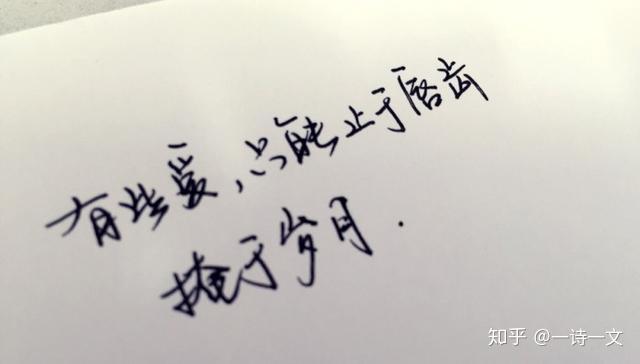 有些爱,只能止于唇齿
掩于岁月.
知乎 @一诗一文